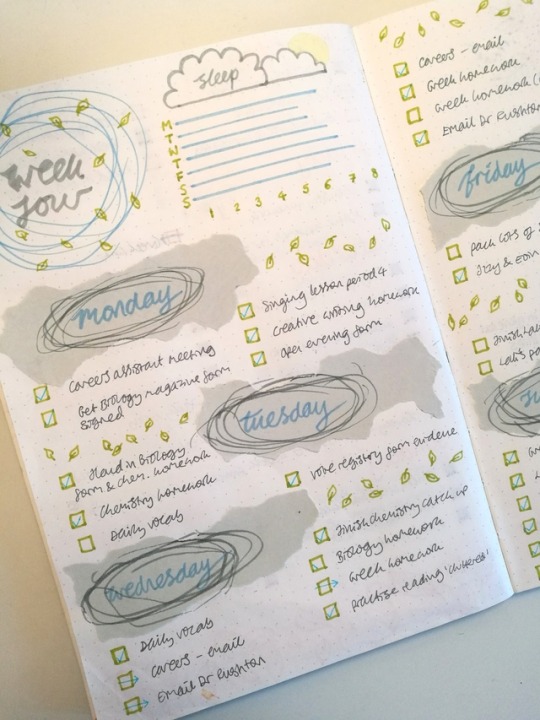 week
four
sleep
M
T
W
T
F
S
S
1 2 3 4 5 6 7 8
monday
Careers assistant meeting
Get Biology magazine form
signed
Singing lesson period 4
creative writing homework
open evening form
tuesday
Hand in Biology
form & chem. homework
Chemistry homework
Daily vocab
vote registry form evidence
finish chemistry catch up
Biology homework
Greek homework
practise reading
wednesday
Daily vocab
careers - email
Email Dr Rushton
careers - email
Greek homework
Greek homework
Email Dr Rushton
friday
pack lots of
Izzy &
finish